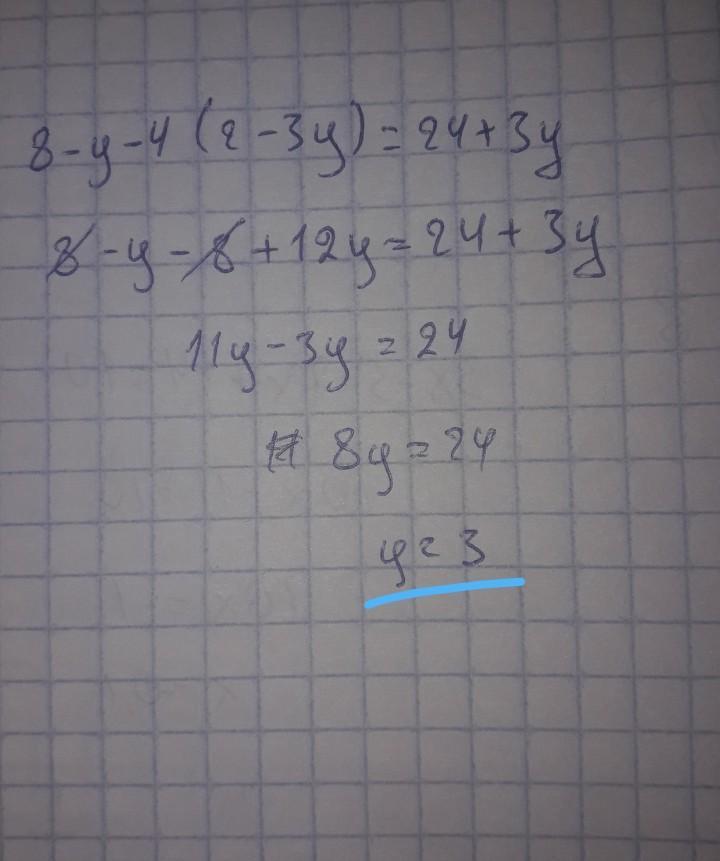 8-y-4(2-3y)=24+3y
8-y-8+12y=24+3y
11y-3y=24
8y=24
y=3